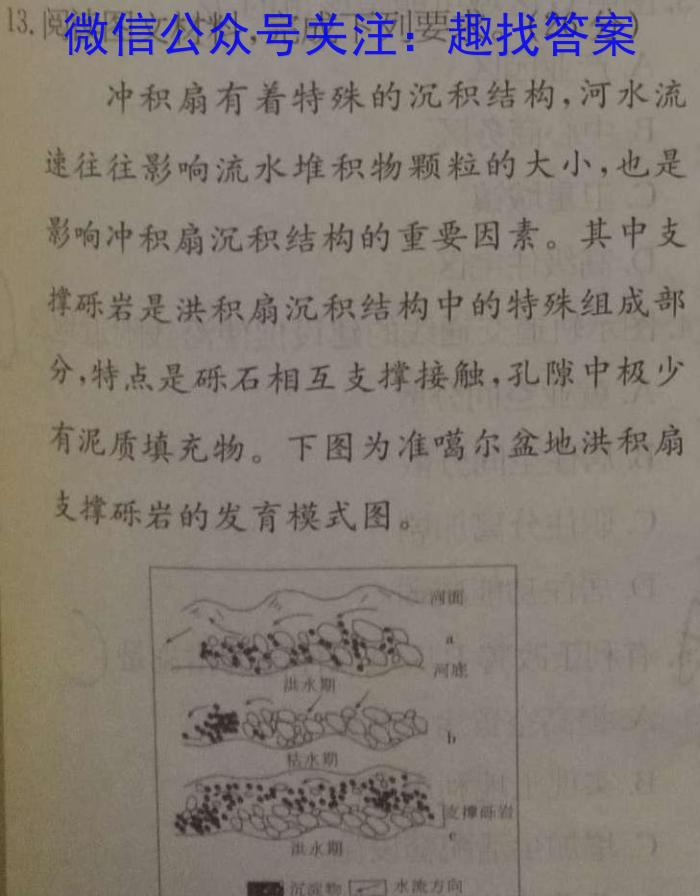 微信公众号关注：趣找答案
13.阅
冲积扇有着特殊的沉积结构,河水流
速往往影响流水堆积物颗粒的大小,也是
影响冲积扇沉积结构的重要因素。其中支
撑砾岩是洪积扇沉积结构中的特殊组成部
分,特点是砾石相互支撑接触,孔隙中极少
有泥质填充物。下图为准噶尔盆地洪积扇
支撑砾岩的发育模式图。
河面
a
河底
洪水期
b
枯水期
支撑砾岩
c
洪水期
沉淀物 水流方向